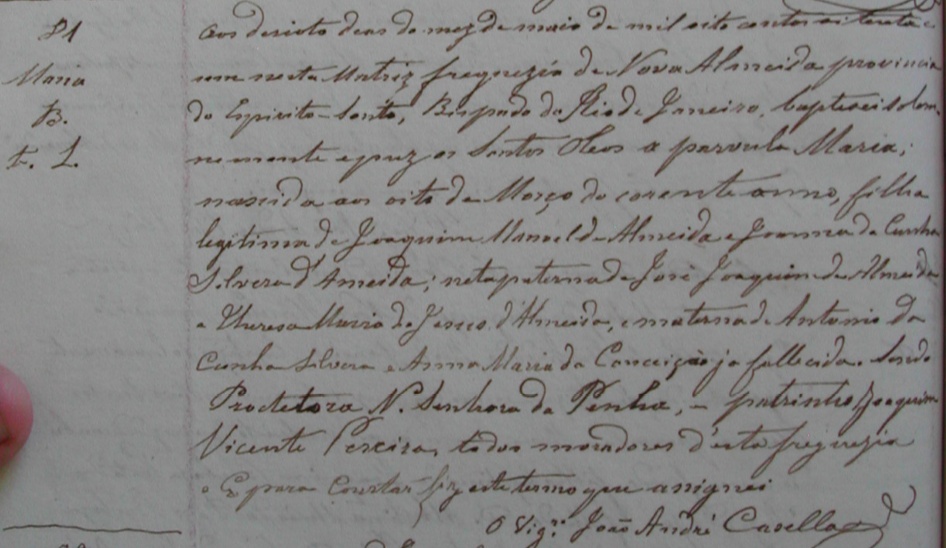 21
Maria
B.
F. L.
aos desioto deas do mez de maio de mil oito centos oitenta e
um nesta Matriz freguezia de Nova Almeida provincia
do Espirito-Santo, Bispado do Rio de Janeiro, baptisei solem.
nemente e puz os Santos Oleos a parvula Maria;
nascida aos oito de Março do corente anno, filha
legitima de Joaquim Manoel d'Almeida e Joanna da Cunha
Silvera d'Ameida; neta paterna de José Joaquim de Almeida
e Theresa Maria de Jesus d'Almeida, e materna de Antonio da
Cunha Silvera e Anna Maria da Conceição ja fallecida. Sendo
Protetora N. Senhora da Penha, – patrinho Joaquim
Vicente Pereira, todos moradores d'esta freguezia
E para constar fiz este termo que asignei
O Vigr.º João André Casella